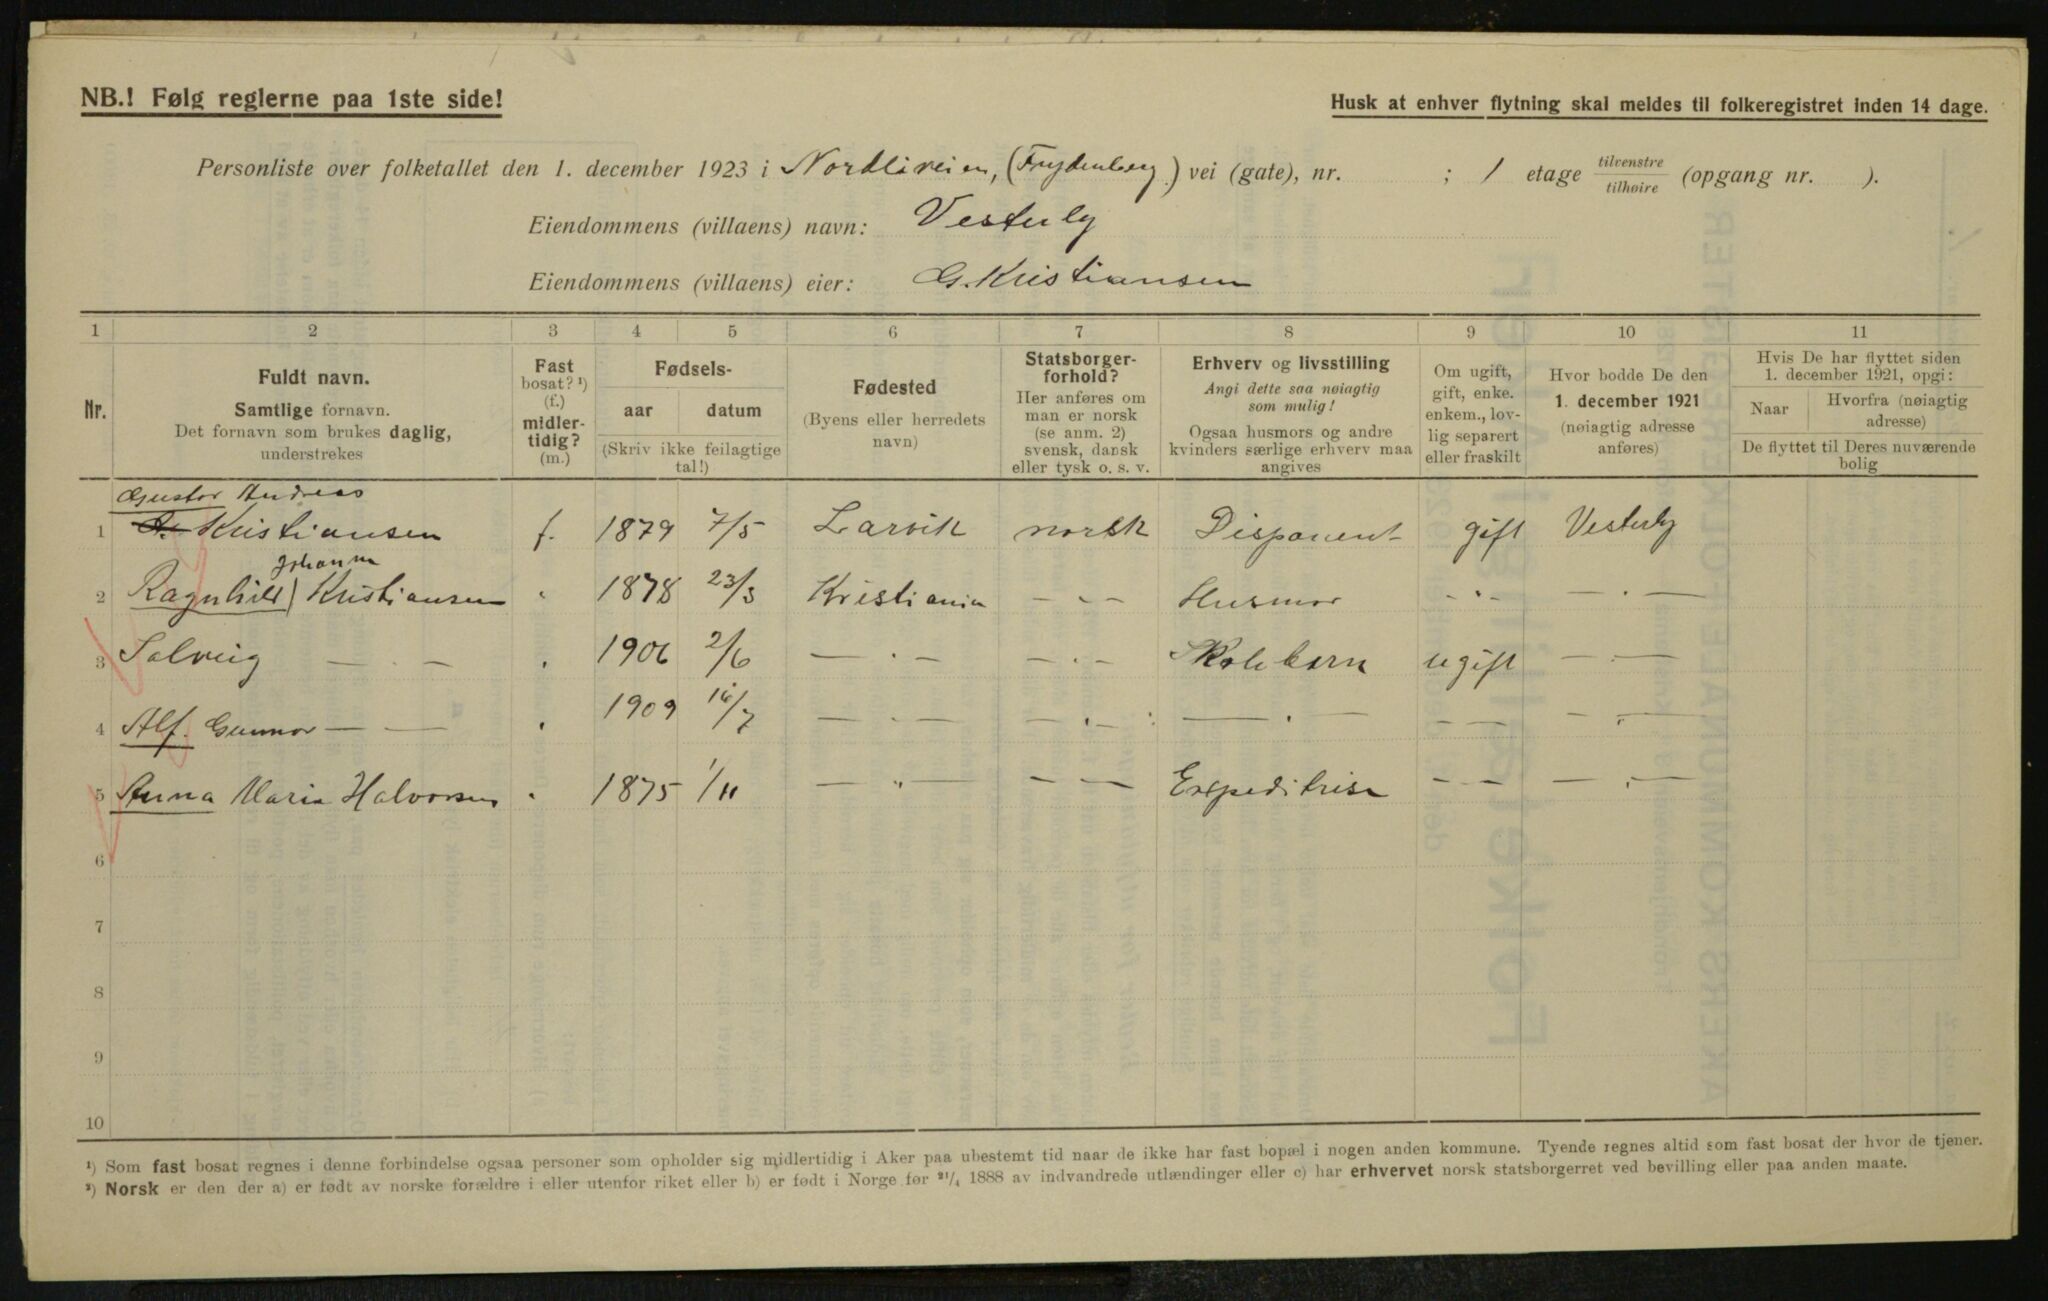 NB.! Følg reglerne paa 1ste side!
Husk at enhver flytning skal meldes til folkeregistret inden 14 dage.
Personliste over folketallet den 1. december 1923 i Nordliveien, (Frydenberg) vei (gate), nr. ; 1 etage tilvenstre/tilhøire (opgang nr. ).
Eiendommens (villaens) navn: Vesterly
Eiendommens (villaens) eier: G. Kristiansen
1 2 3 4 5 6 7 8 9 10 11
Nr.
Fuldt navn.
Samtlige fornavn.
Det fornavn som brukes daglig,
understrekes
Fast
bosat? ¹)
(f.)
midler-
tidig?
(m.)
Fødsels-
aar datum
(Skriv ikke feilagtige
tal!)
Fødested
(Byens eller herredets
navn)
Statsborger-
forhold?
Her anføres om
man er norsk
(se anm. 2)
svensk, dansk
eller tysk o. s. v.
Erhverv og livsstilling
Angi dette saa nøiagtig
som mulig!
Ogsaa husmors og andre
kvinders særlige erhverv maa
angives
Om ugift,
gift, enke.
enkem., lov-
lig separert
eller fraskilt
Hvor bodde De den
1. december 1921
(nøiagtig adresse
anføres)
Hvis De har flyttet siden
1. december 1921, opgi:
Naar Hvorfra (nøiagtig
adresse)
De flyttet til Deres nuværende
bolig
Gustav Andreas
1 G. Kristiansen f. 1879 7/5 Larvik norsk Disponent gift Vesterly
Johanne
2 Ragnhild Kristiansen " 1878 23/3 Kristiania — " — Husmor — " — — " —
3 Solveig — " — " 1906 2/6 — " — — " — Skolebarn ugift — " —
4 Alf. Gunnar — — " 1909 16/7 — " — — " — — " — — — — " —
5 Anna Maria Halvorsen " 1875 1/11 — " — — — Expeditrise — — — " —
6
7
8
9
10
¹) Som fast bosat regnes i denne forbindelse ogsaa personer som opholder sig midlertidig i Aker paa ubestemt tid naar de ikke har fast bopæl i nogen anden kommune. Tyende regnes altid som fast bosat der hvor de tjener.
²) Norsk er den der a) er født av norske forældre i eller utenfor riket eller b) er født i Norge før 21/4 1888 av indvandrede utlændinger eller c) har erhvervet norsk statsborgerret ved bevilling eller paa anden maate.